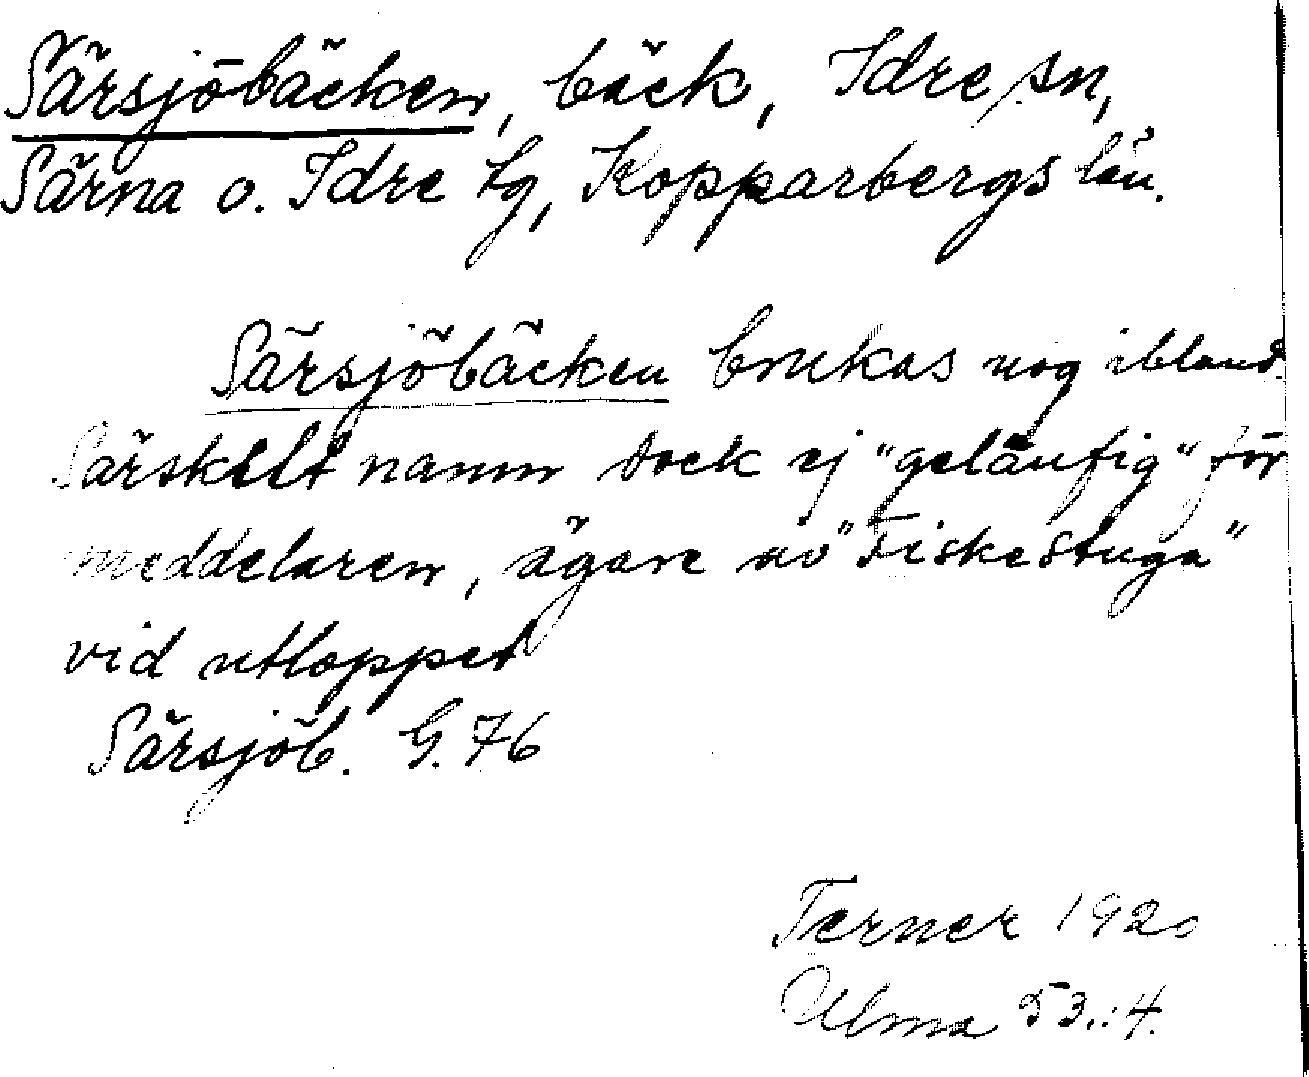 Särsjöbäcken, bäck, Idre sn,
Särna o. Idre tg, Kopparbergs län.
Särsjöbäcken brukas nog ibland.
Särskilt namn dock ej "geläufig" för
meddelaren, ägare av "Fiskestuga"
vid utloppet
Särsjöb. G. 76
Terner 1920
Ulma 53.:4.